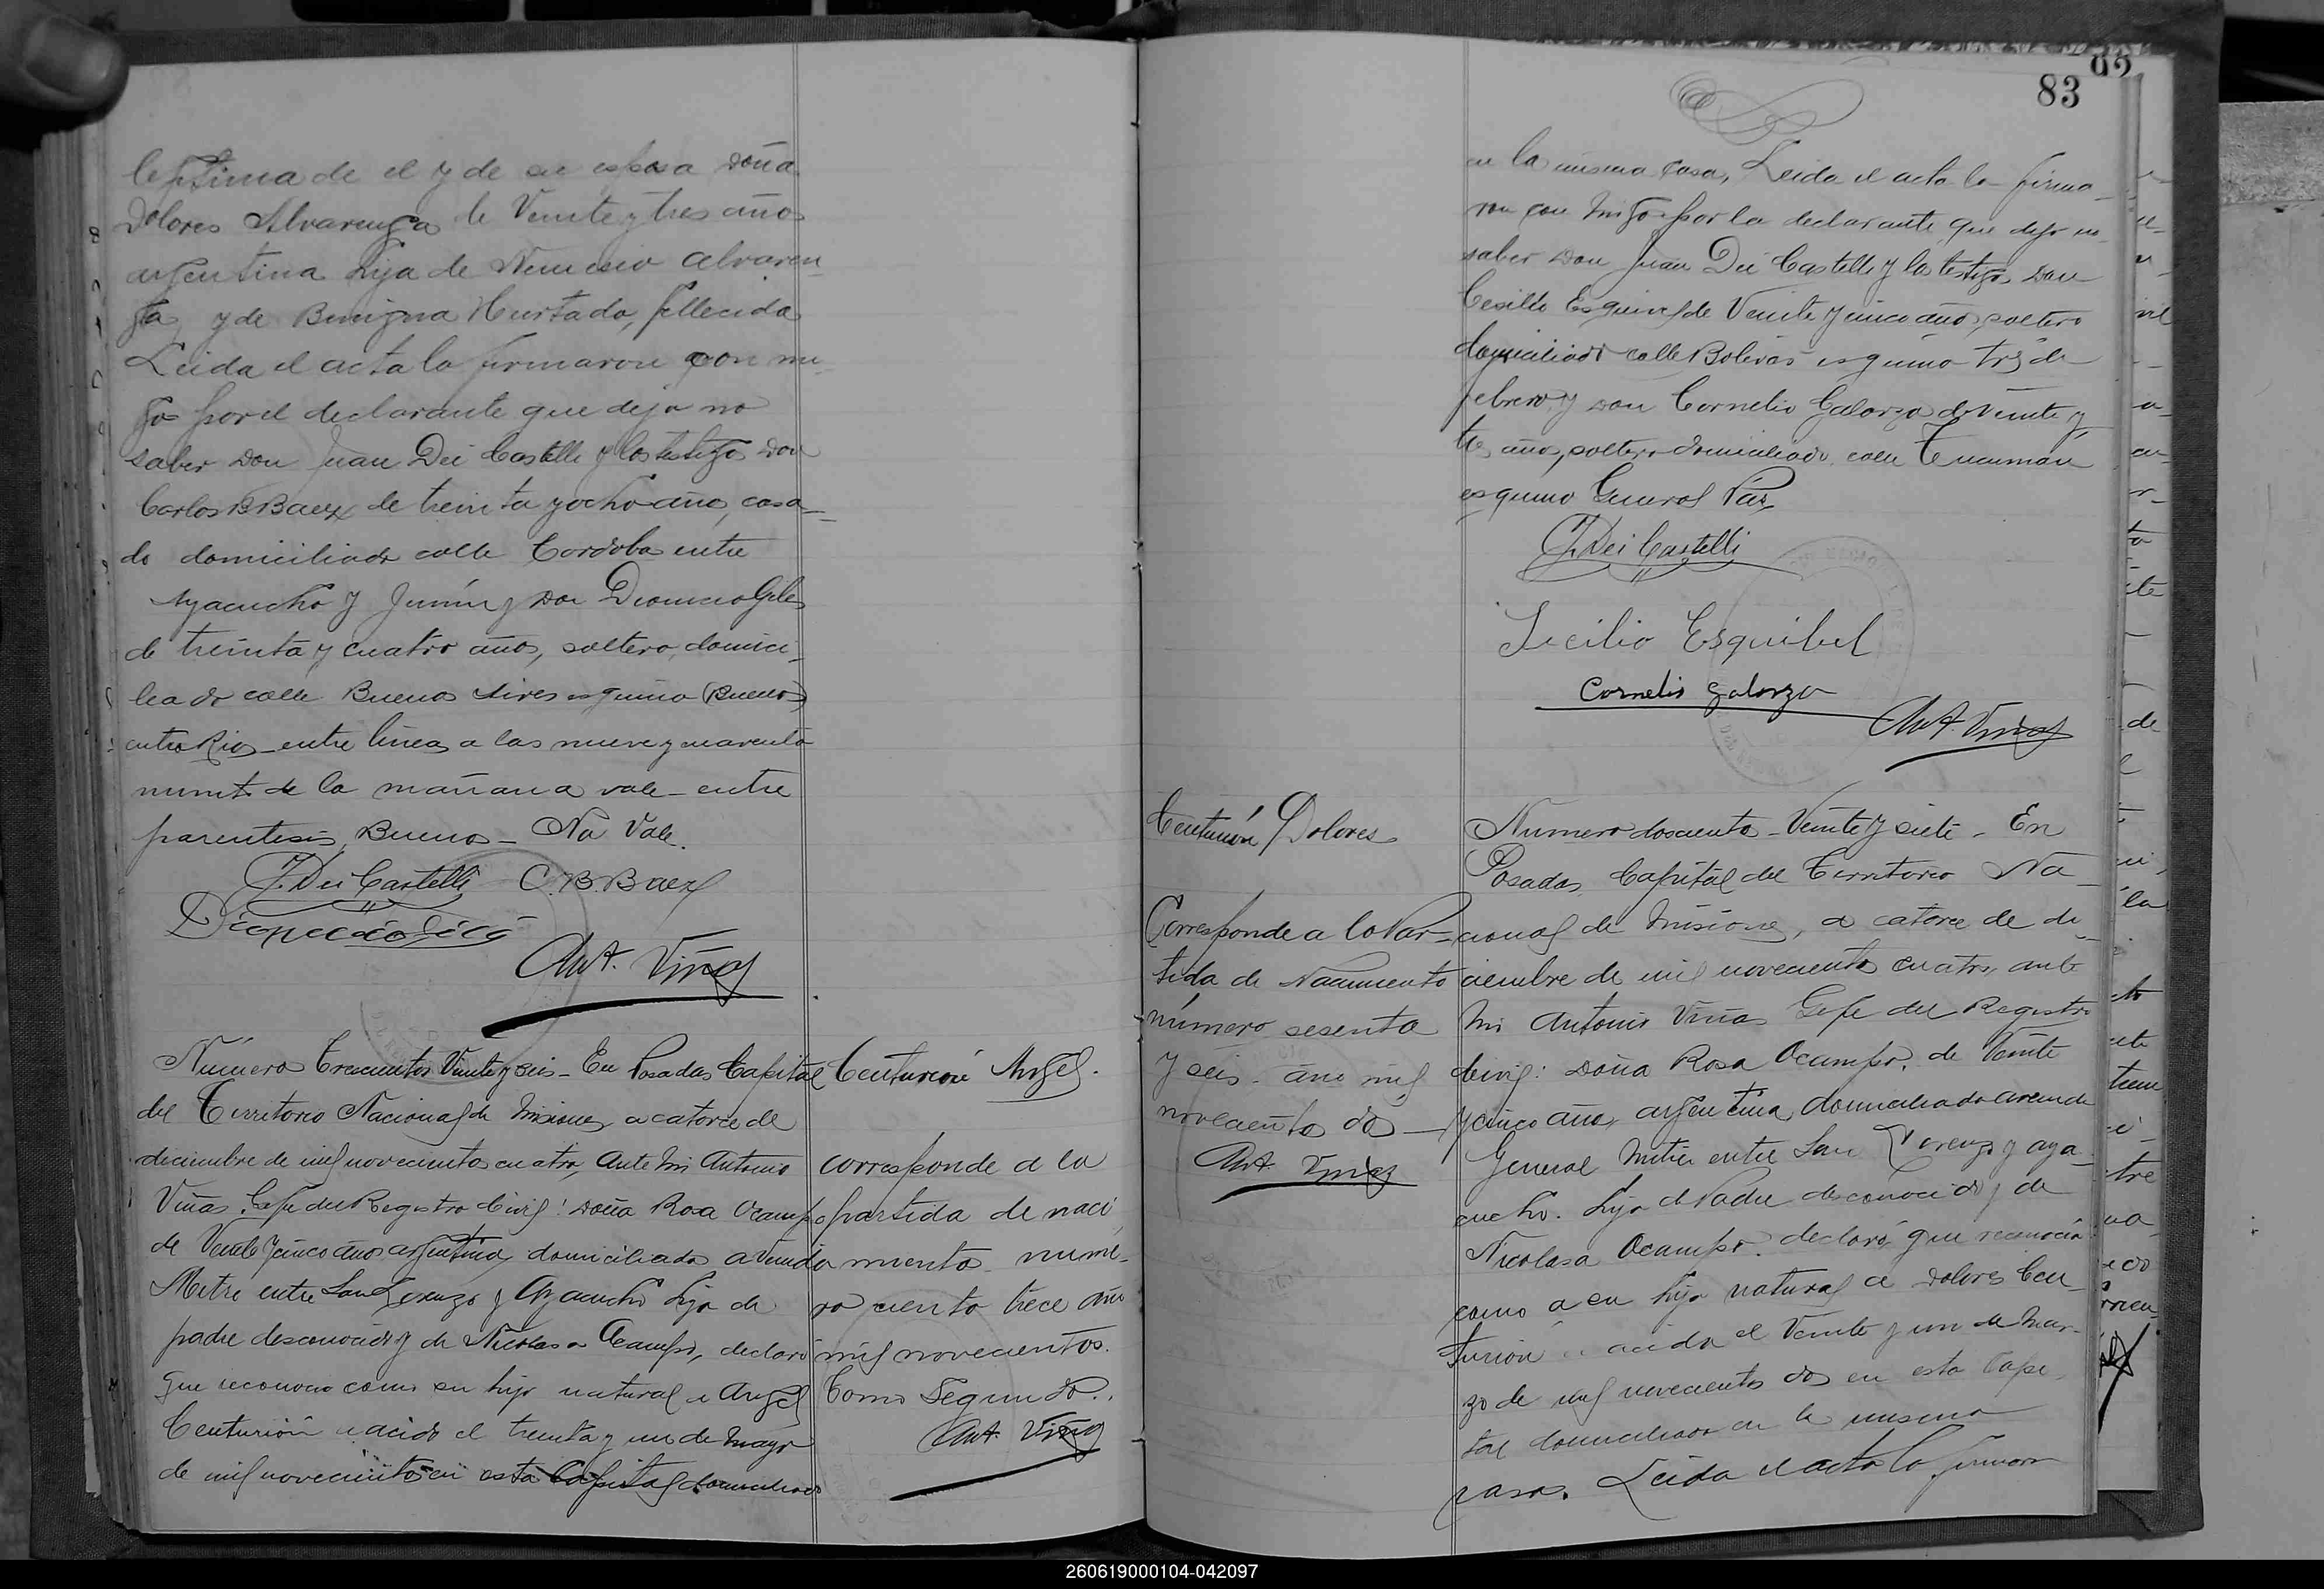 legítima de el y de su esposa doña
Dolores Alvarenga de Veinte y tres años
argentina hija de Nemesio Alvaren-
ga y de Benigna Hurtado, fallecida
Leida el acta la firmaron con mi-
go por el declarante que dijo no
saber don Juan Dei Castelli y los testigos don
Carlos B. Baez de treinta y ocho años, casa-
do domiciliado calle Cordoba entre
Ayacucho y Junín y don
de treinta y cuatro años, soltero, domici-
liado calle Buenos Aires esquina (Buenos)
entre Rios - entre líneas a las nueve y cuarenta
minuts de la mañana vale - entre
parentesis, Buenos - No Vale.
J. Dei Castelli C. B. Baez
Ant. Viñas
Número Trescientos Veinte y seis - En Posadas Capital
del Territorio Nacional de Misiones, a catorce de
diciembre de mil novecientos cuatro, Ante mi Antonio
Viñas, Gefe del Registro Civil: doña Rosa Ocampo
de Veinte y cinco años argentina, domiciliada avenida
Mitre entre San Lorenzo y Ayacucho hija de
padre desconocido y de Nicolasa Ocampo, declaró
que reconocía como su hijo natural a Angel
Centurión nacido el treinta y un de Mayo
de mil novecientos en esta Capital domiciliado
Centurión Angel.
corresponde a la
partida de naci
miento nume-
ro ciento trece año
mil novecientos.
Tomo Segundo.
Ant. Viñas
83
en la misma casa, Leida el acta la firma-
ron con migo por la declarante que dijo no
saber don Juan Dei Castelli y los testigos don
Cecilio Esquivel de Veinte y cinco años, soltero
domiciliado calle Bolivar esquina tres de
febrero y don Cornelio Galarza de Veinte y
tres años, soltero domiciliado calle Tucumán
esquina General Paz
J. Dei Castelli
Secilio Esquibel
Cornelio galarza
Ant. Viñas
Centurión Dolores
Corresponde a la Par-
tida de Nacimiento
número sesenta
y seis. año mil
novecientos dos
Ant. Viñas
Numero doscientos Veinte y siete - En
Posadas, Capital del Territorio Na-
cional de Misiones, a catorce de di-
ciembre de mil novecientos cuatro, ante
mi Antonio Viñas Gefe del Registro
Civil: doña Rosa Ocampo, de Veinte
y cinco años, argentina, domiciliada avenida
General Mitre entre San Lorenzo y Aya-
cucho. hija de Padre desconocido y de
Nicolasa Ocampo. declaró que reconocía
como a su hija natural a Dolores Cen-
turión nacida el Veinte y un de Mar-
zo de mil novecientos dos en esta Capi-
tal domiciliada en la misma
casa. Leida el acta la firmaron
260619000104-042097